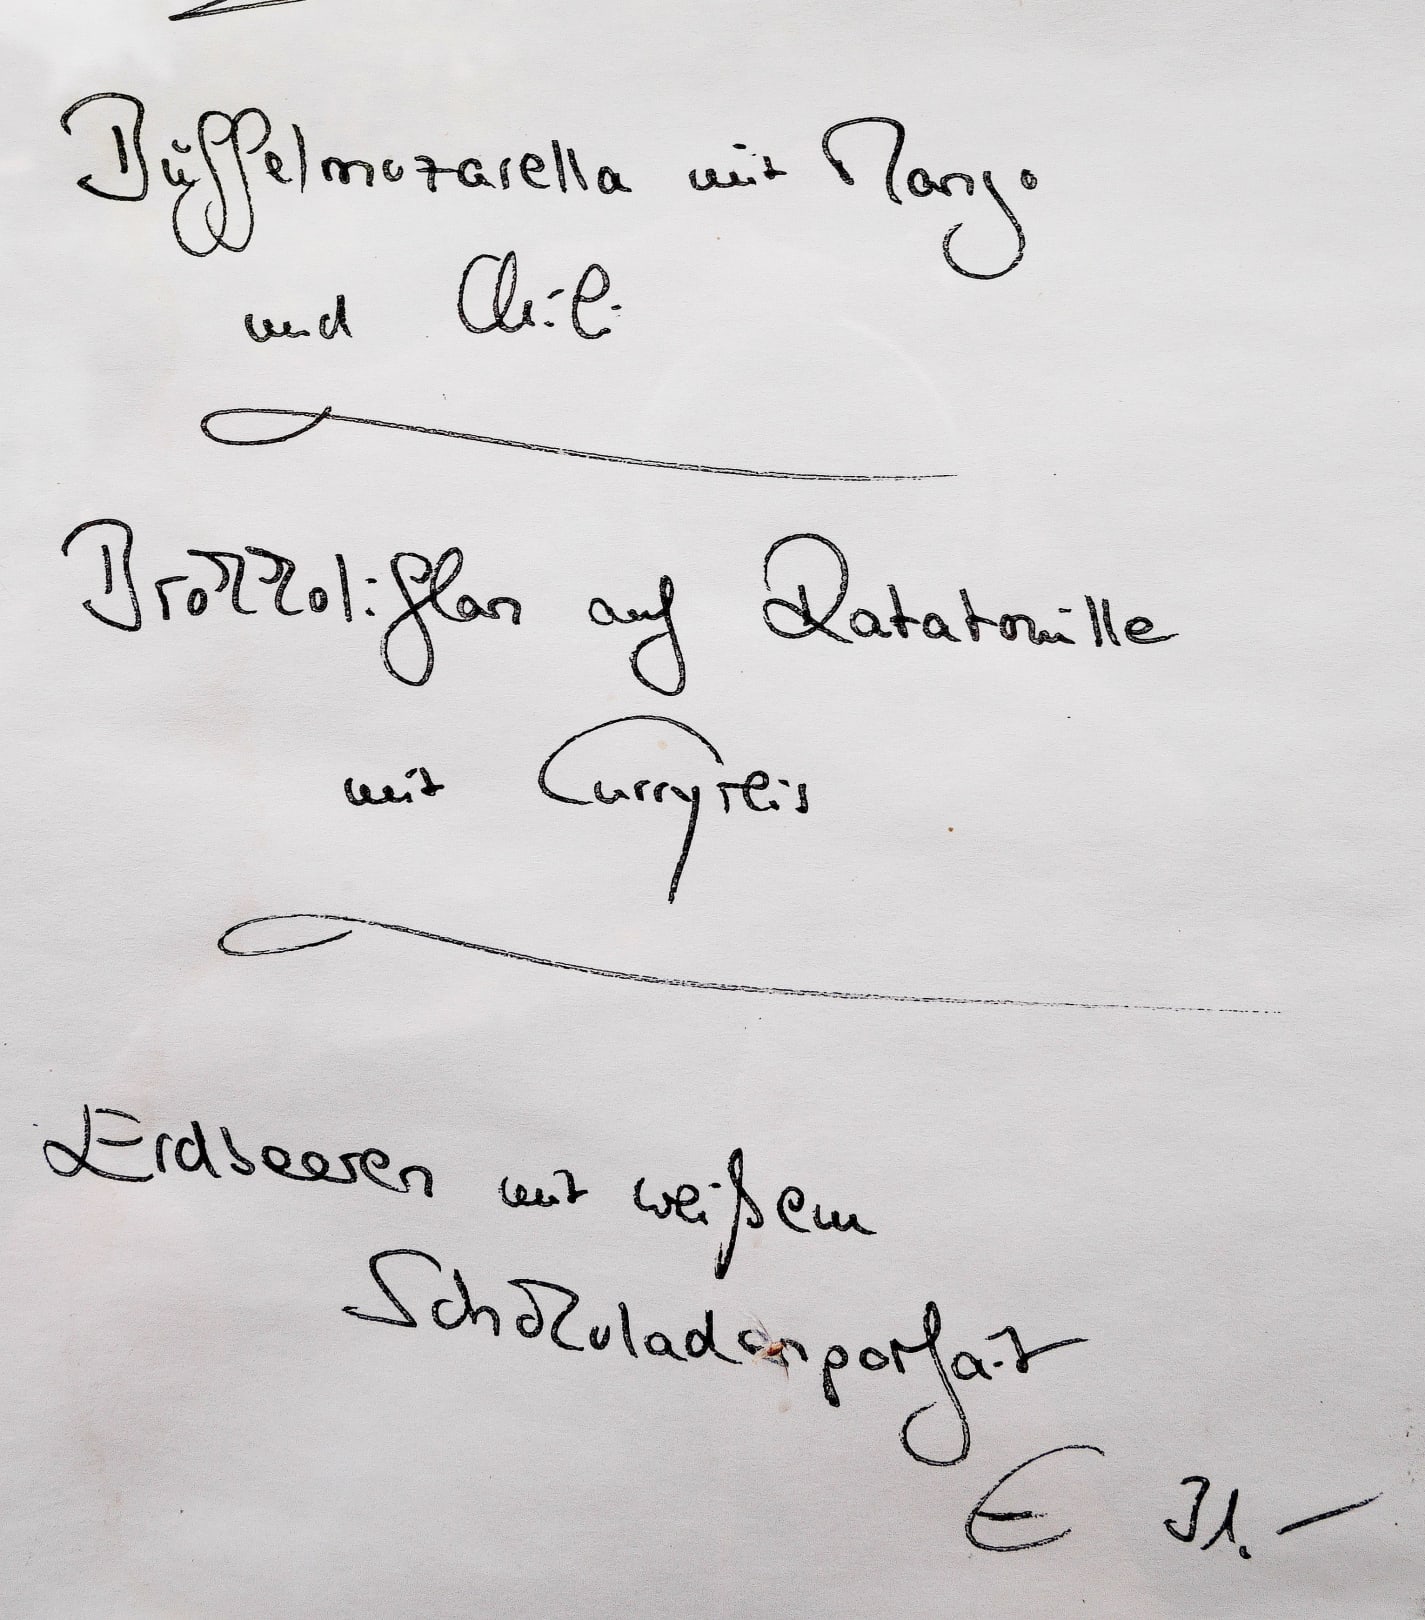 Büffelmozarella mit Mango
und Chili
Brokkoliflan auf Ratatouille
mit Curryreis
Erdbeeren mit weißem
Schokoladenparfait
€ 31.-